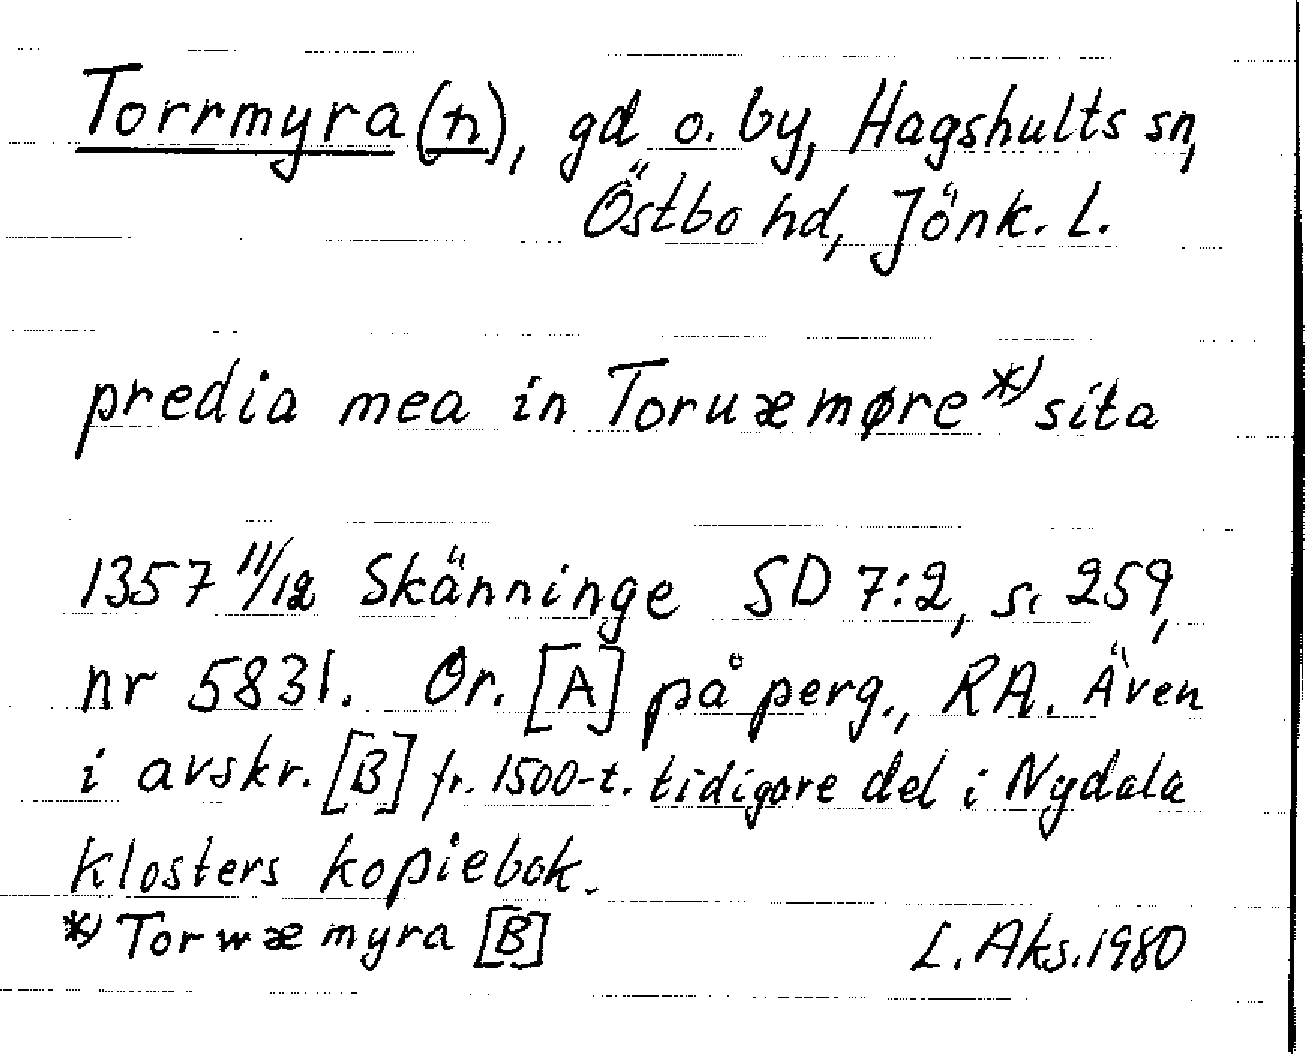 Torrmyra(n), gd o. by, Hagshults sn,
Östbo hd, Jönk. L.
predia mea in Toruæmøre*) sita
1357 11/12 Skänninge SD 7:2, s. 259,
nr 5831. Or. [A] på perg., RA. Även
i avskr. [B] fr. 1500-t. tidigare del i Nydala
klosters kopiebok.
*) Torwæmyra [B]
L. Aks. 1980